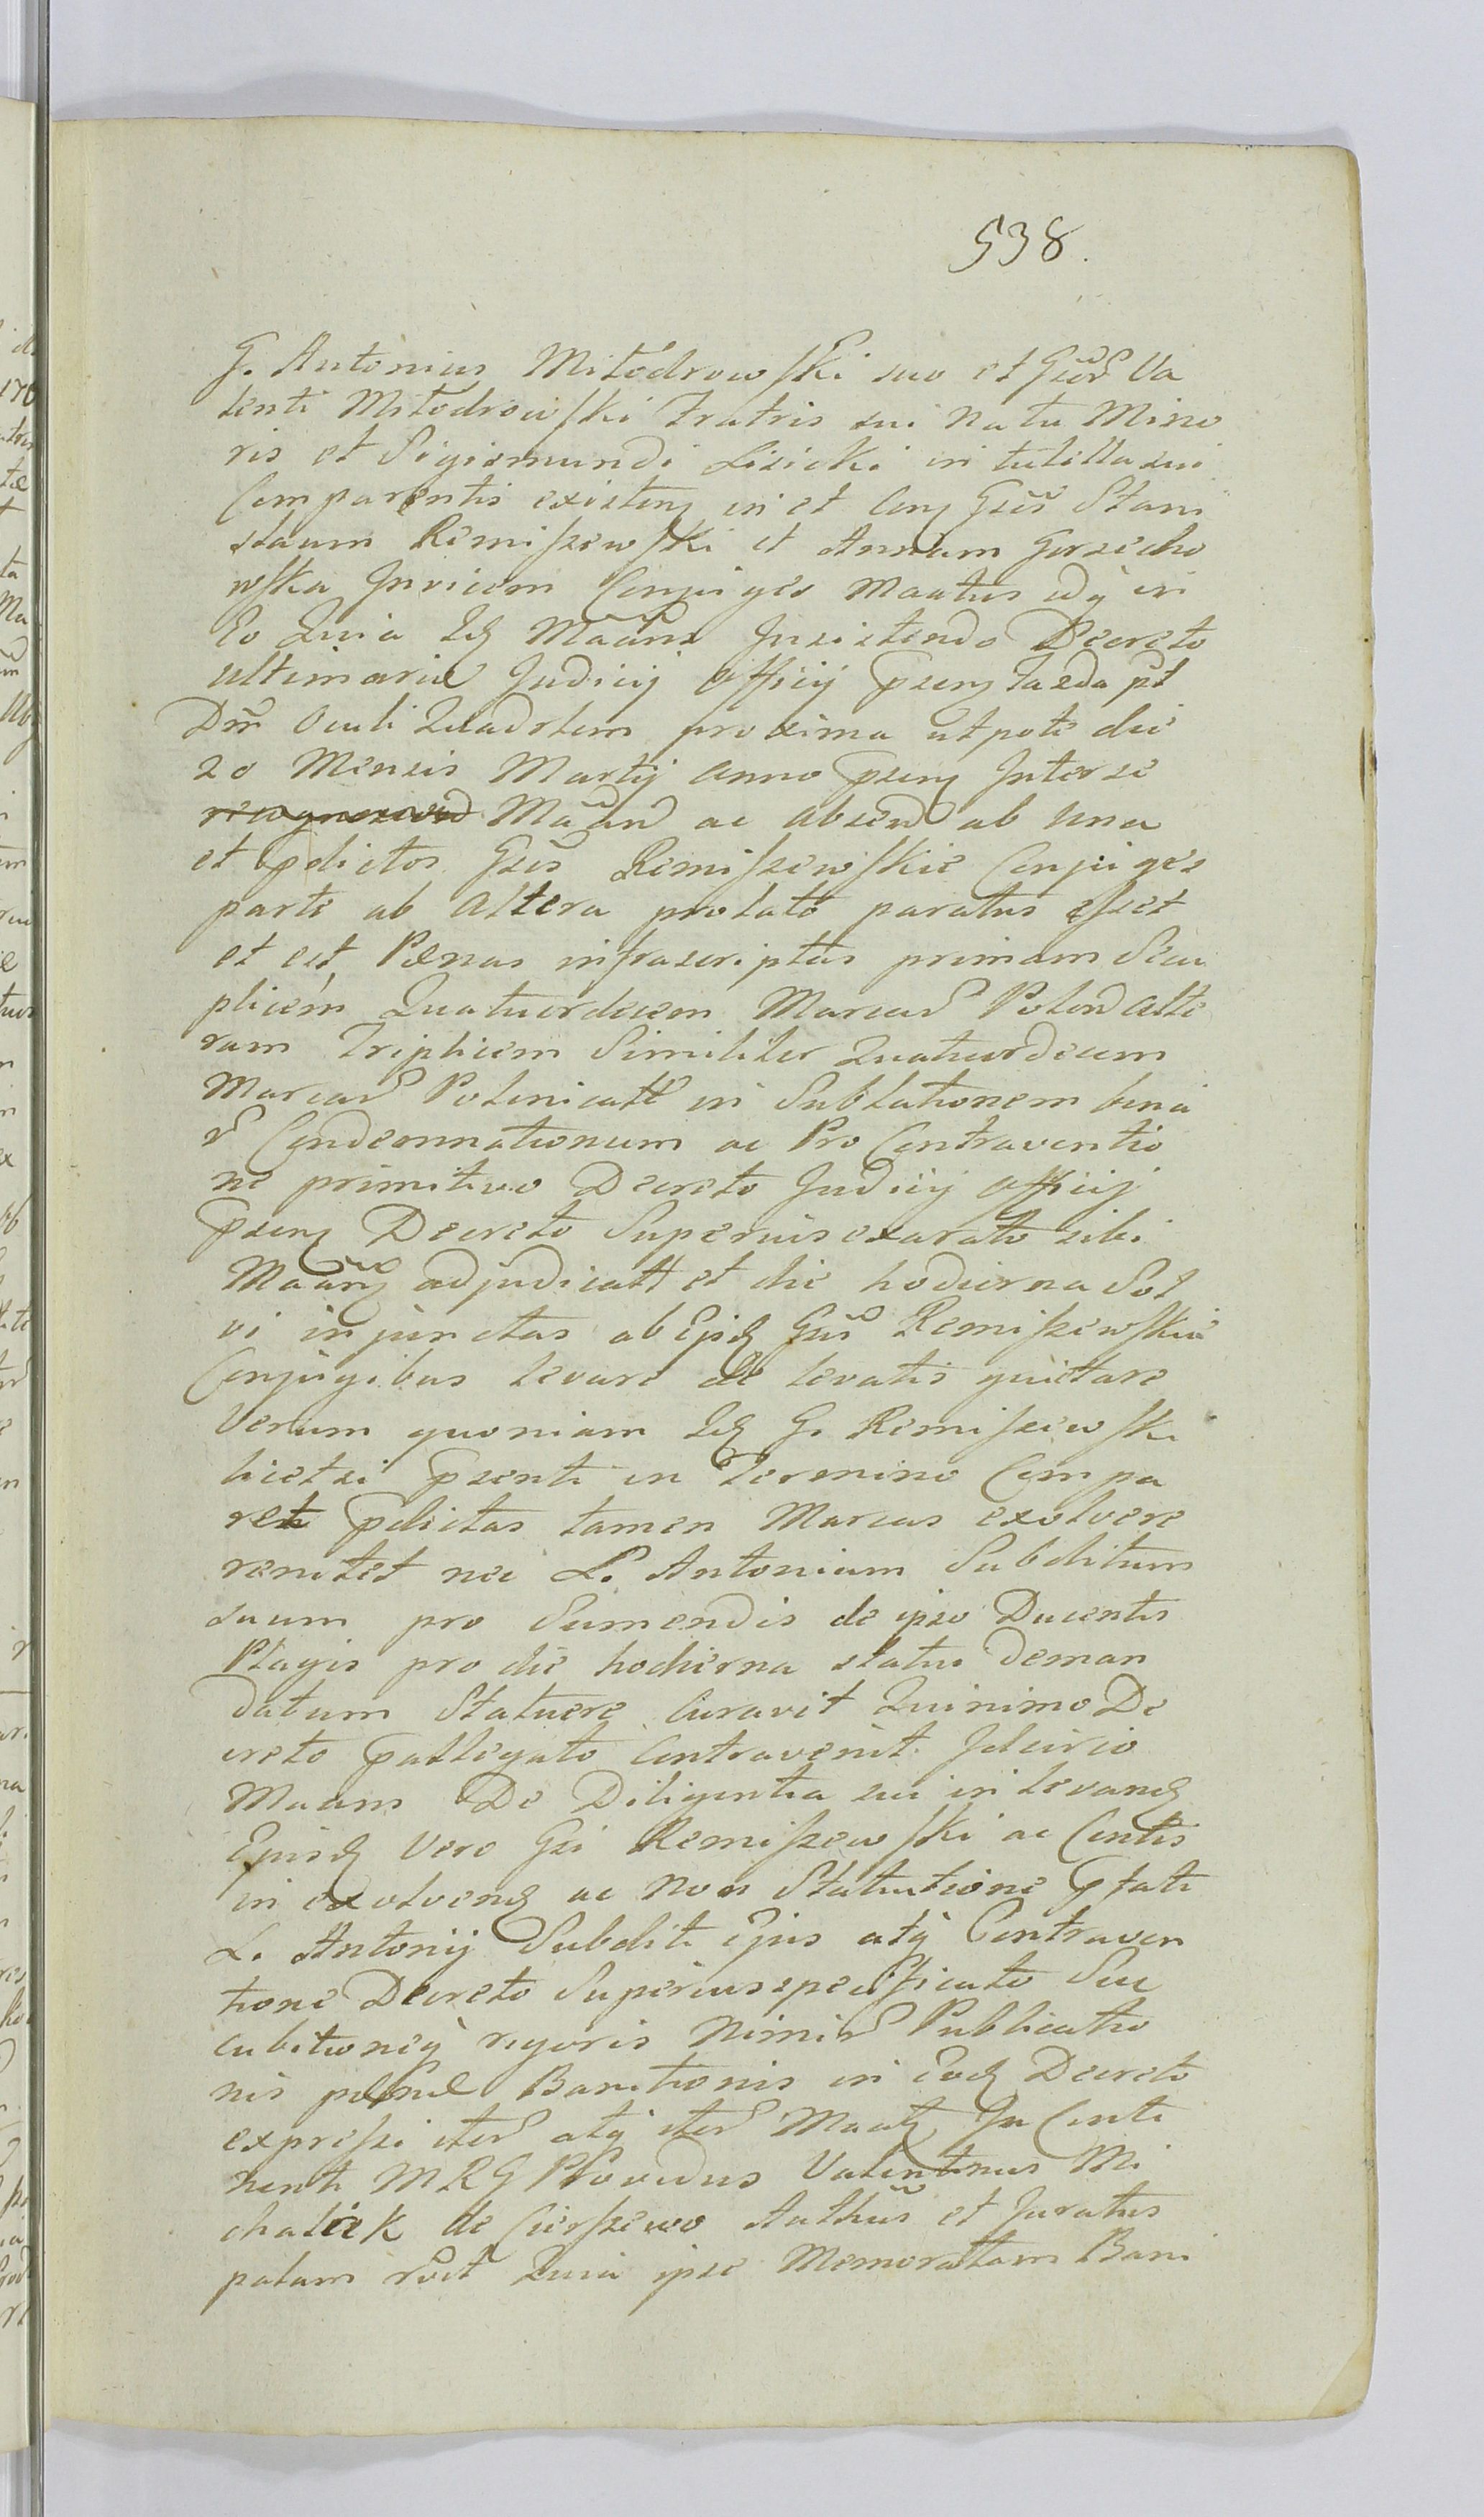 538.
G. Antonius Mitodrowski suo et Gsor Va
lenti Mitodrowski Fratris sui natu Mino
ris et Sigismundi Lisicki in tutella sui
Comparentis existens in et Con Gsos Stani
slaum Remiszewski et Annam Gorzecho
wska Invicem Conjuges Maatus idq in
Eo Quia Id Maans Insistendo Decreto
ultimarie Judicij Officij psens Fazda pt
Dm Oculi Quadrlem proxima utpote die
20 Mensis Martij Anno psens Inter se
Maand ac absend ab una
et pdictos Gsos Remiszewskie Conjuges
parte ab Altera prolato paratus esset
et est Pænas infrascriptas primam Sim
plicem Quatuordecem Marcar Polon Alte
ram Triplicem Similiter Quatuordecem
Marcar Polonicall in Sublationem bina
r Condemnationum ac Pro Contraventio
ne primitivo Decreto Judicij Officij
psens Decreto Superius exarato sibi
Maans adjudicatt et die hodierna Sol
vi injunctas ab Ejsd Gsis Remiszewskie
Conjugibus levare de levatis quietare
Verum quoniam Id G. Remiszewski
licet si psenti in Termino Compa
ret pdictas tamen Marcas exolvere
renitet nec L. Antonium Subditum
suum pro Sumendis de ipso Ducentis
Plagis pro die hodierna statui deman
datum Statuere Curavit Quinimo De
creto pallegato Contravenit. Idcirco
Maans De Diligentia sui in levand
Ejusd Vero Gsi Remiszewski ac Contis
in exolvend ac non Statutione pfati
L. Antonij Subditi Ejus atq Contraven
tione Decreto Superius specificato Suc
cubitioneq rigoris nimir Publicatio
nis pænæ Banitionis in Eod Decreto
expressi iter atq iter Maats In Conti
nenti MRG Providus Valentinus Mi
chalek de Cierszewo Authus et Juratus
palam roit Quia ipse Memoratam Bani